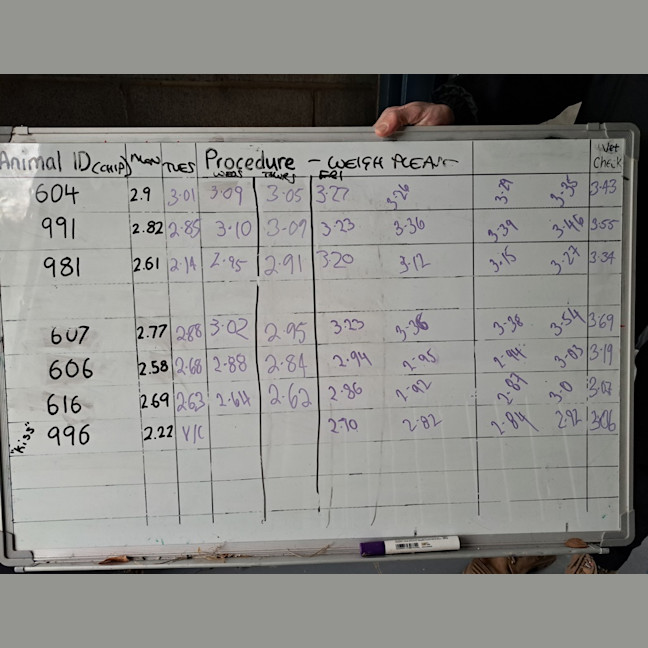 Animal ID (CHIP) MON TUES Procedure - WEIGH PLEASE Vet Check
WEDS THURS FRI
604 2.9 3.01 3.09 3.05 3.27 3.26 3.29 3.35 3.43
991 2.82 2.85 3.10 3.09 3.23 3.36 3.39 3.46 3.55
981 2.61 2.95 2.91 3.20 3.12 3.15 3.27 3.34
607 2.77 2.88 3.02 2.95 3.23 3.36 3.38 3.54 3.69
606 2.58 2.68 2.88 2.84 2.94 2.95 2.94 3.03 3.19
616 2.69 2.63 2.64 2.62 2.86 2.92 2.87 3.0
"Kiss" 996 2.22 V/C 2.70 2.82 2.84 2.92 3.06